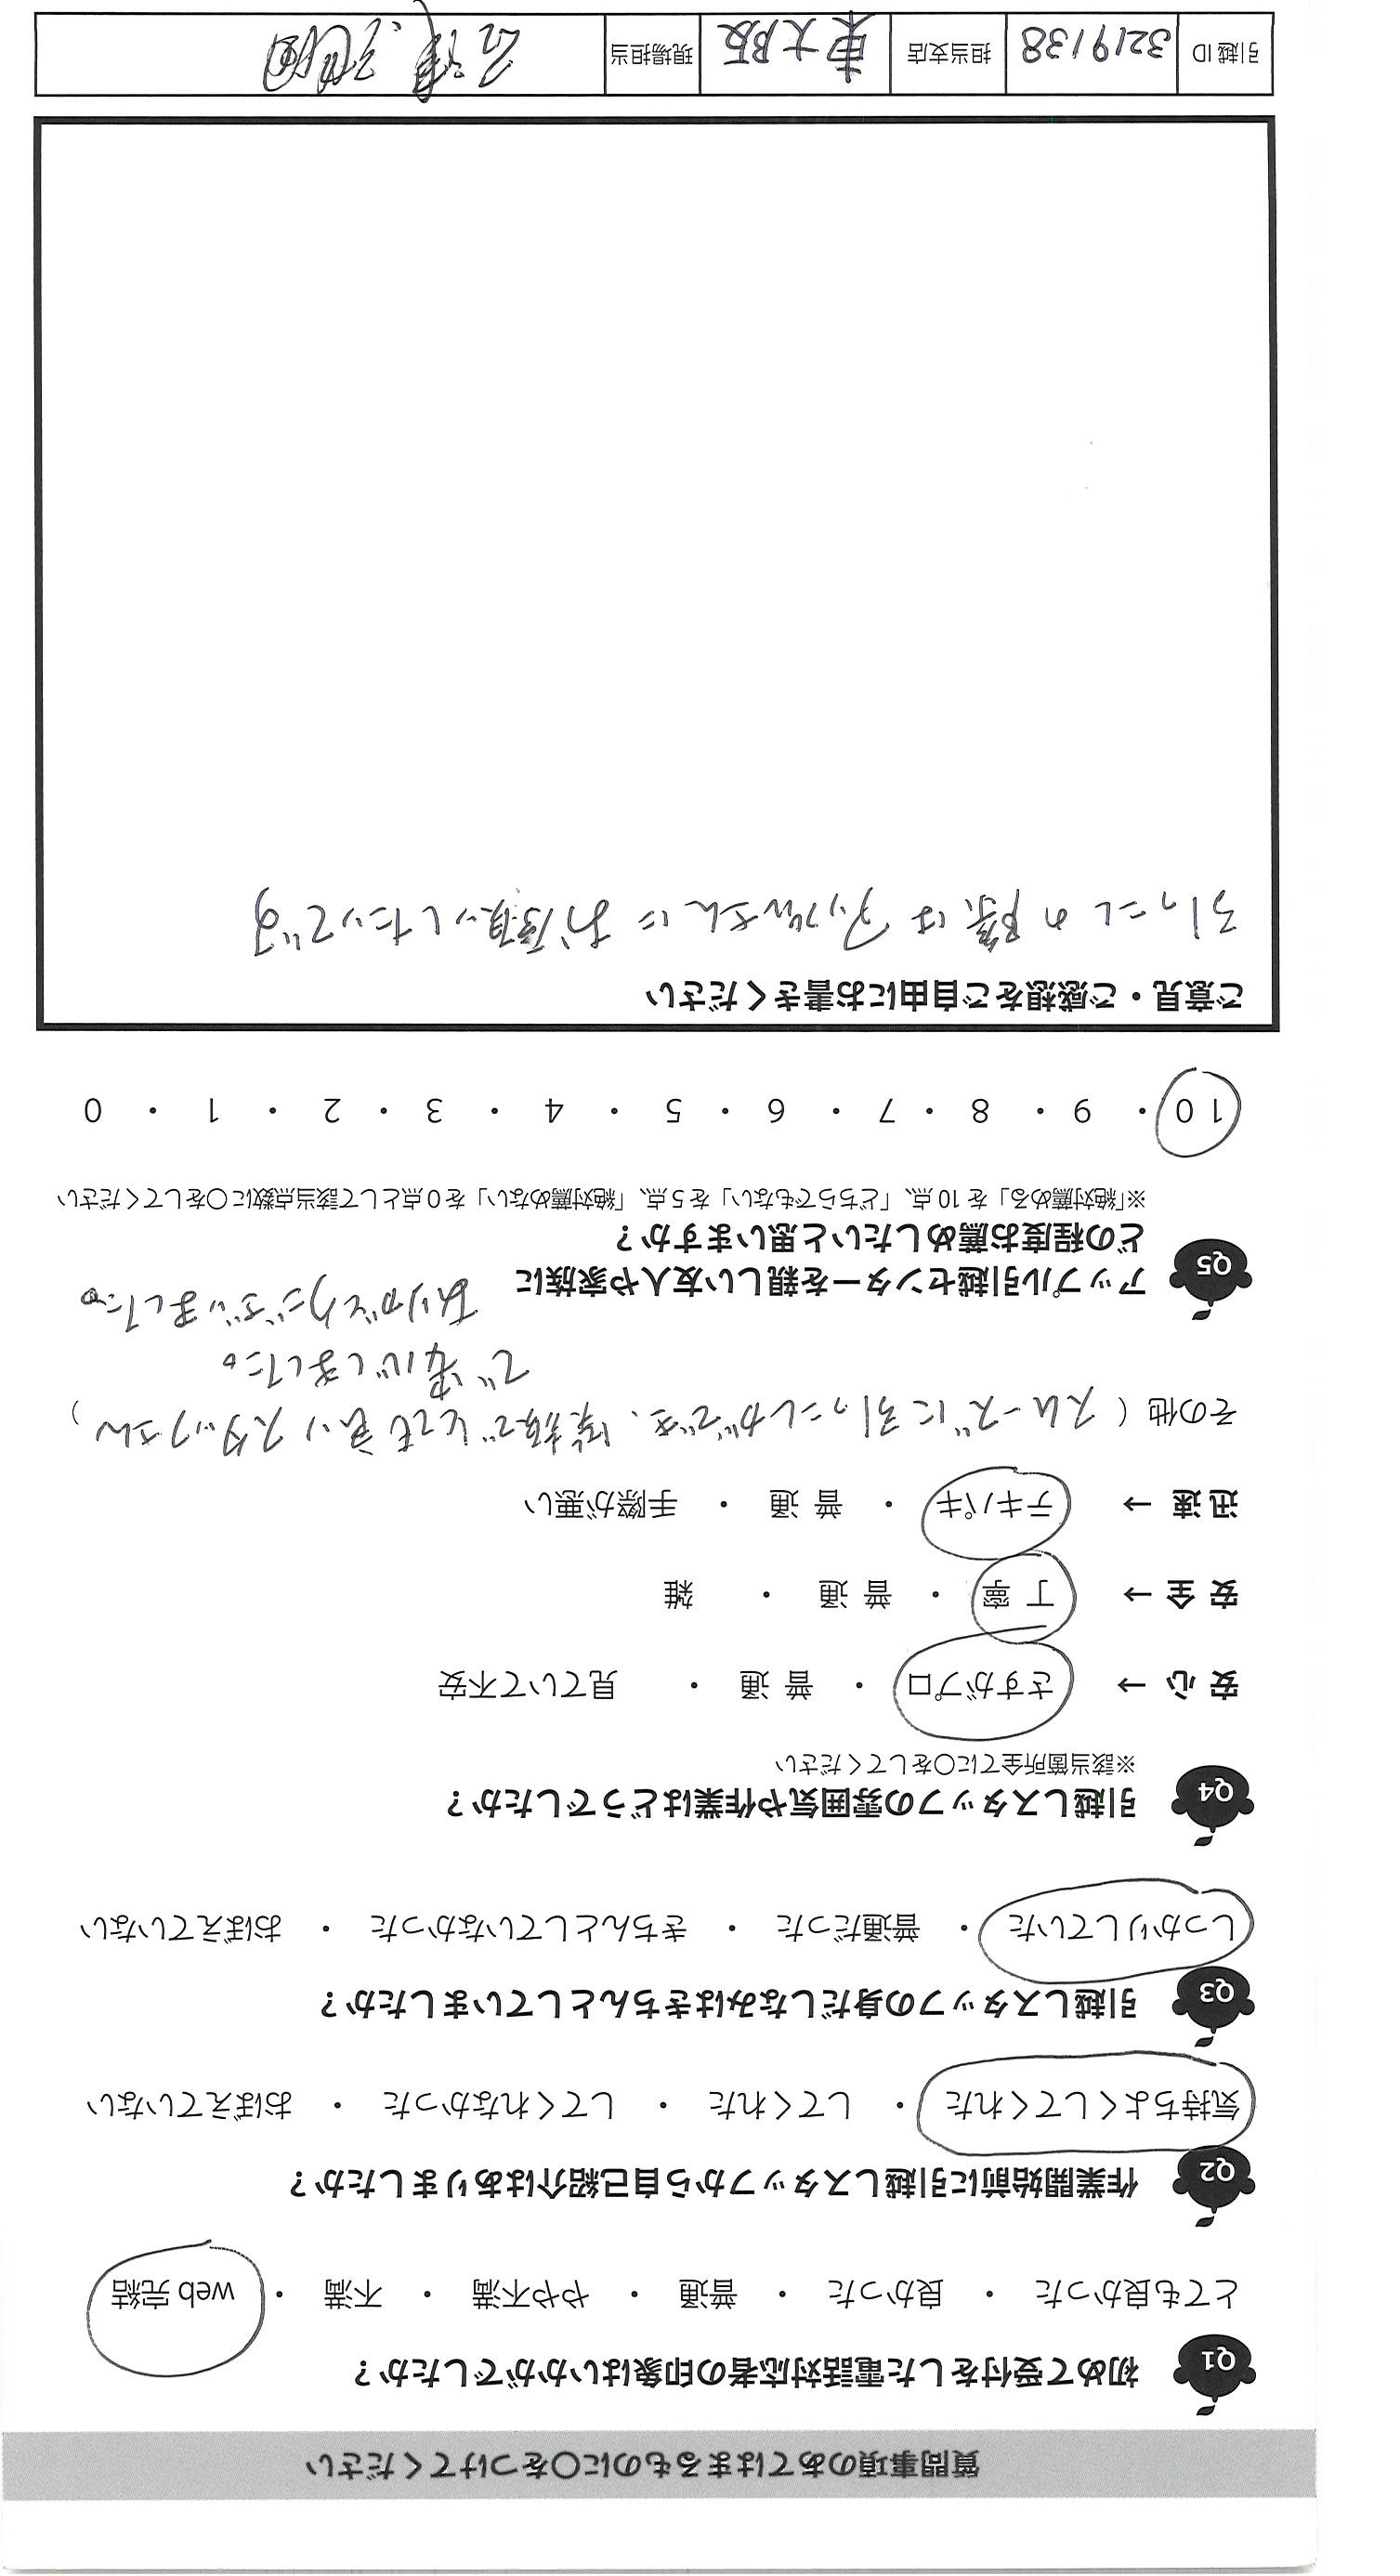 質問事項のあてはまるものに〇をつけてください
Q1 初めて受付をした電話対応者の印象はいかがでしたか？
とても良かった ・ 良かった ・ 普通 ・ やや不満 ・ 不満 ・ web 完結
Q2 作業開始前に引越しスタッフから自己紹介はありましたか？
気持ちよくしてくれた ・ してくれた ・ してくれなかった ・ おぼえていない
Q3 引越しスタッフの身だしなみはきちんとしていましたか？
しっかりしていた ・ 普通だった ・ きちんとしていなかった ・ おぼえていない
Q4 引越しスタッフの雰囲気や作業はどうでしたか？
※該当箇所全てに〇をしてください
安 心 → さすがプロ ・ 普 通 ・ 見ていて不安
安 全 → 丁 寧 ・ 普 通 ・ 雑
迅 速 → テキパキ ・ 普 通 ・ 手際が悪い
その他（ スムーズに引っこしができ、笑顔でとても良いスタッフさん ）
で安心しました。
ありがとうございました。
Q5 アップル引越センターを親しい友人や家族に
どの程度お薦めしたいと思いますか？
※「絶対薦める」を 10 点、「どちらでもない」を 5 点、「絶対薦めない」を 0 点として該当点数に〇をしてください
10 ・ 9 ・ 8 ・ 7 ・ 6 ・ 5 ・ 4 ・ 3 ・ 2 ・ 1 ・ 0
ご意見・ご感想をご自由にお書きください
引っこしの際はアップルさんにお願いしたいです
引越 ID 3219138 担当支店 東大阪 現場担当